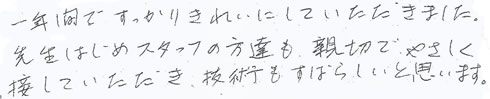 一年間ですっかりきれいにしていただきました。
先生はじめスタッフの方達も親切でやさしく
接していただき、技術もすばらしいと思います。